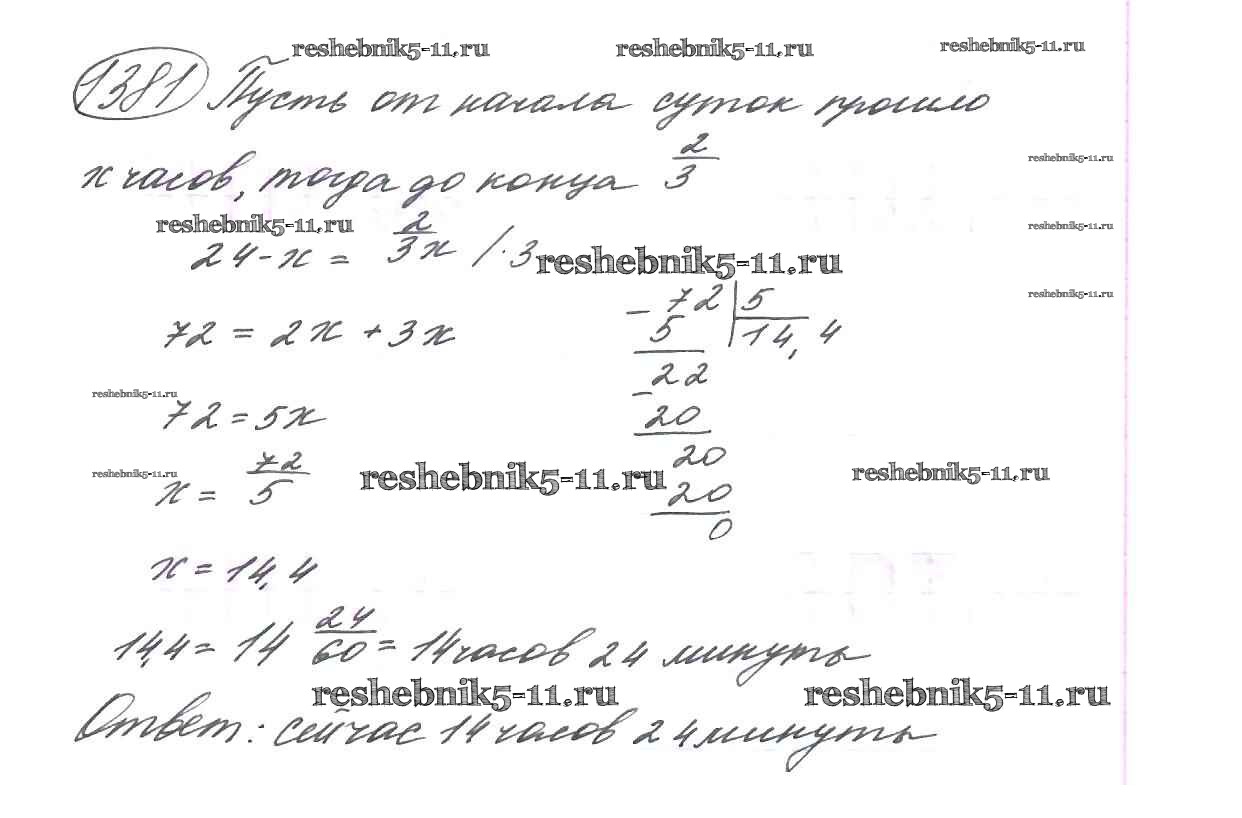 reshebnik5-11.ru reshebnik5-11.ru reshebnik5-11.ru
1381 Пусть от начала суток прошло
x часов, тогда до конца 2/3
reshebnik5-11.ru
reshebnik5-11.ru reshebnik5-11.ru
24 - x = 2/3x / · 3 reshebnik5-11.ru
reshebnik5-11.ru
72 = 2x + 3x
- 72 | 5
5 14,4
- 22
reshebnik5-11.ru
72 = 5x
20
20
reshebnik5-11.ru reshebnik5-11.ru reshebnik5-11.ru
x = 72/5
20
0
x = 14,4
14,4 = 14 24/60 = 14 часов 24 минуты
reshebnik5-11.ru reshebnik5-11.ru
Ответ: сейчас 14 часов 24 минуты